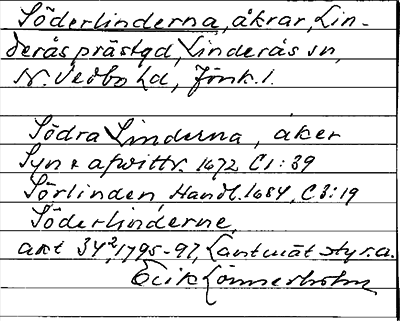 Söderlinderna, åkrar, Lin-
derås prästgd, Linderås sn,
N. Vedbo hd, Jönk. l.
Södra Linderna, åker
Syn & afwittr. 1672 C1:39
Sörlinden, Handl. 1684, C3:19
Söderlinderne,
akt 34², 1795-97, Lantmät.styr.a.
Erik Lönnerholm